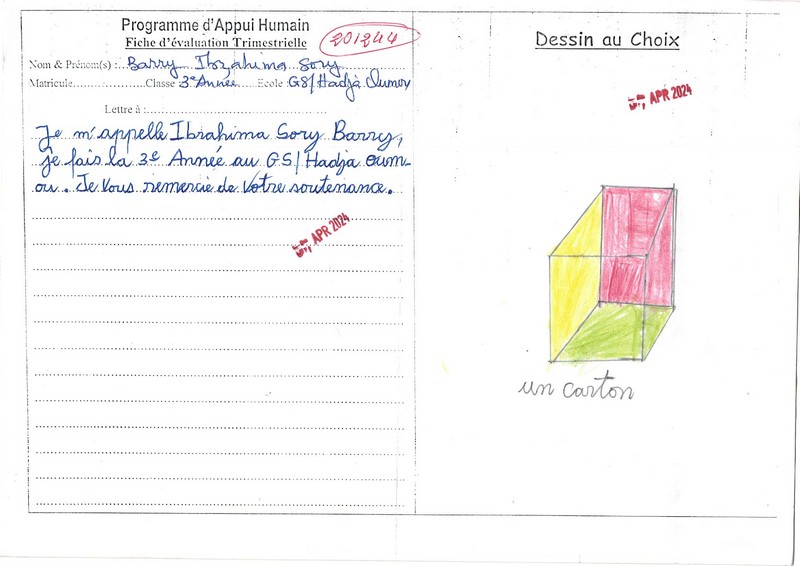 Programme d'Appui Humain
Fiche d'évaluation Trimestrielle
201244
Nom & Prénom(s) : Barry Ibrahima Sory
Matricule Classe 3e Année Ecole GS/Hadja Oumou
Lettre à :
Je m'appelle Ibrahima Sory Barry,
je fais la 3e Année au GS/Hadja oum-
ou. Je Vous remercie de Votre soutenance.
APR 2024
Dessin au Choix
APR 2024
un carton